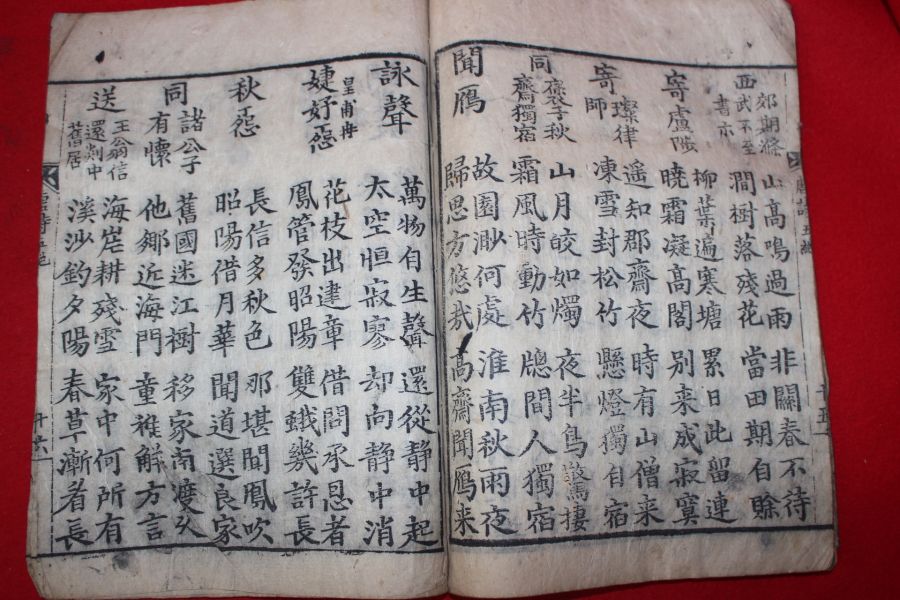 西郊期滌武不至書示
山高鳴過雨 非關春不待
澗樹落殘花 當田期自賒
寄盧陟
柳葉遍寒塘 累日此留連
曉霜凝高閣 别來成寂寞
寄璨律師
遥知郡齋夜 時有山僧來
凍雪封松竹 懸燈獨自宿
同褒子秋齋獨宿
山月皎如燭 夜半鳥驚棲
霜風時動竹 牎間人獨宿
聞鴈
故園渺何處 淮南秋雨夜
歸思方悠哉 高齋聞鴈来
唐詩五絶 廿五
詠聲
萬物自生聲 還從静中起
太空恒寂寥 却向静中消
婕妤怨 皇甫冉
花枝出建章 借問承恩者
鳳管發昭陽 雙蛾幾許長
秋怨
長信多秋色 那堪聞鳳吹
昭陽借月華 聞道選良家
同諸公子有懷
舊國迷江樹 移家南渡久
他鄉近海門 童稚解方言
送王翁信還剡中舊居
海岸耕殘雪 家中何所有
溪沙釣夕陽 春草漸看長
唐詩五絶 廿六